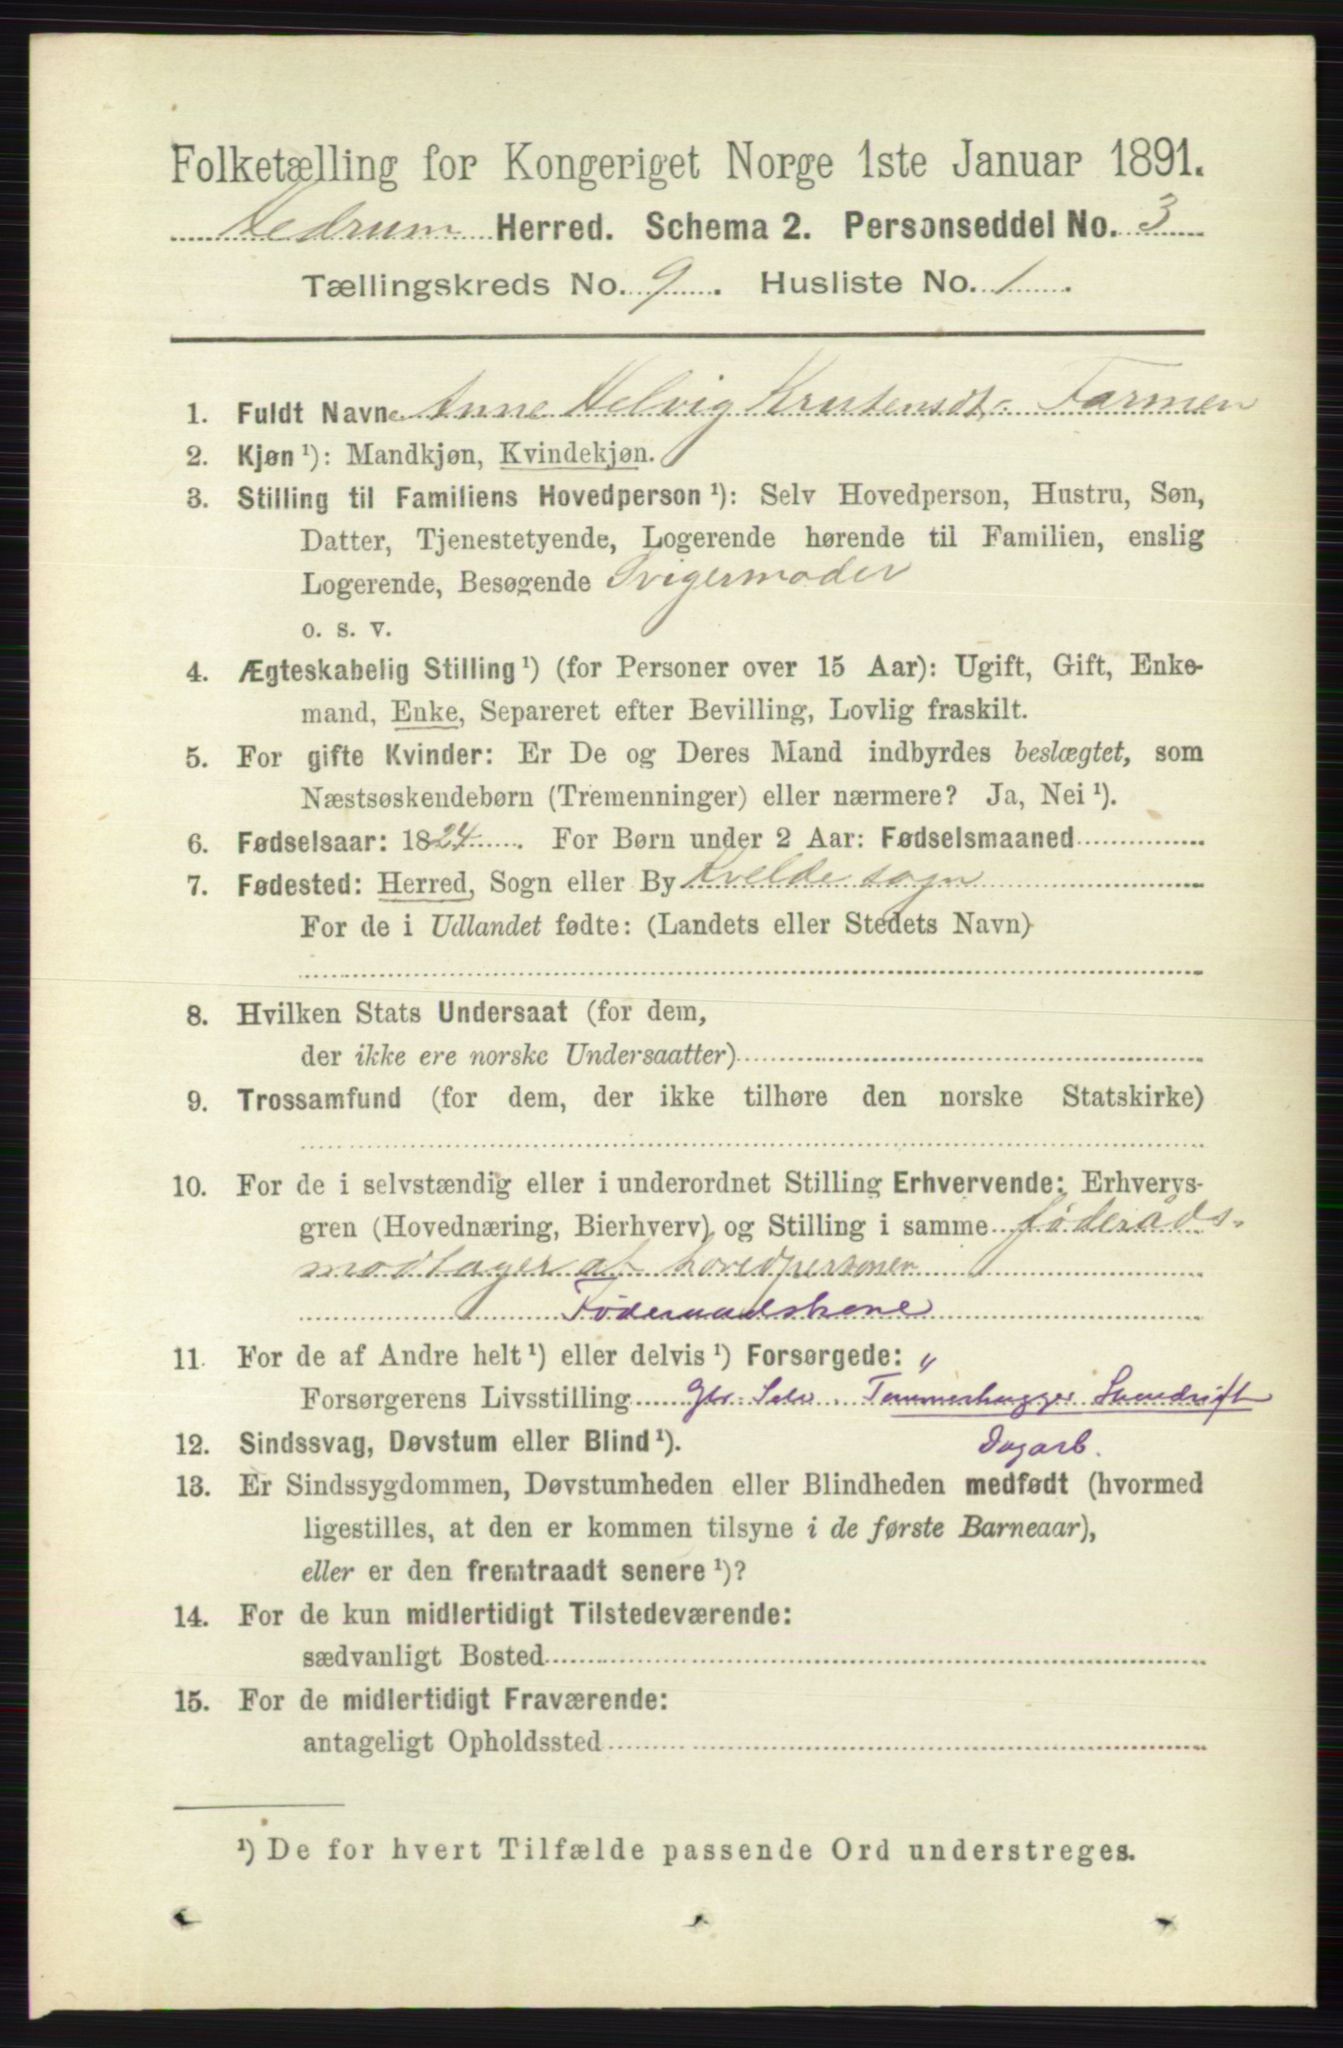 Folketælling for Kongeriget Norge 1ste Januar 1891.
Hedrum Herred. Schema 2. Personseddel No. 3
Tællingskreds No. 9. Husliste No. 1.
1. Fuldt Navn Anne Helvig Kristensdt. Farmen
2. Kjøn ¹): Mandkjøn, Kvindekjøn.
3. Stilling til Familiens Hovedperson ¹): Selv Hovedperson, Hustru, Søn,
Datter, Tjenestetyende, Logerende hørende til Familien, enslig
Logerende, Besøgende Svigermoder
o. s. v.
4. Ægteskabelig Stilling ¹) (for Personer over 15 Aar): Ugift, Gift, Enke-
mand, Enke, Separeret efter Bevilling, Lovlig fraskilt.
5. For gifte Kvinder: Er De og Deres Mand indbyrdes beslægtet, som
Næstsøskendebørn (Tremenninger) eller nærmere? Ja, Nei ¹).
6. Fødselsaar: 1824. For Børn under 2 Aar: Fødselsmaaned
7. Fødested: Herred, Sogn eller By Kvelde sogn
For de i Udlandet fødte: (Landets eller Stedets Navn)
8. Hvilken Stats Undersaat (for dem,
der ikke ere norske Undersaatter)
9. Trossamfund (for dem, der ikke tilhøre den norske Statskirke)
10. For de i selvstændig eller i underordnet Stilling Erhvervende: Erhvervs-
gren (Hovednæring, Bierhverv) og Stilling i samme føderåds-
modtager af hovedpersonen
Føderaadskone
11. For de af Andre helt ¹) eller delvis ¹) Forsørgede: "
Forsørgerens Livsstilling Gbr. Selv. Tømmerhugger
12. Sindssvag, Døvstum eller Blind ¹). Dagarb.
13. Er Sindssygdommen, Døvstumheden eller Blindheden medfødt (hvormed
ligestilles, at den er kommen tilsyne i de første Barneaar),
eller er den fremtraadt senere ¹)?
14. For de kun midlertidigt Tilstedeværende:
sædvanligt Bosted
15. For de midlertidigt Fraværende:
antageligt Opholdssted
¹) De for hvert Tilfælde passende Ord understreges.